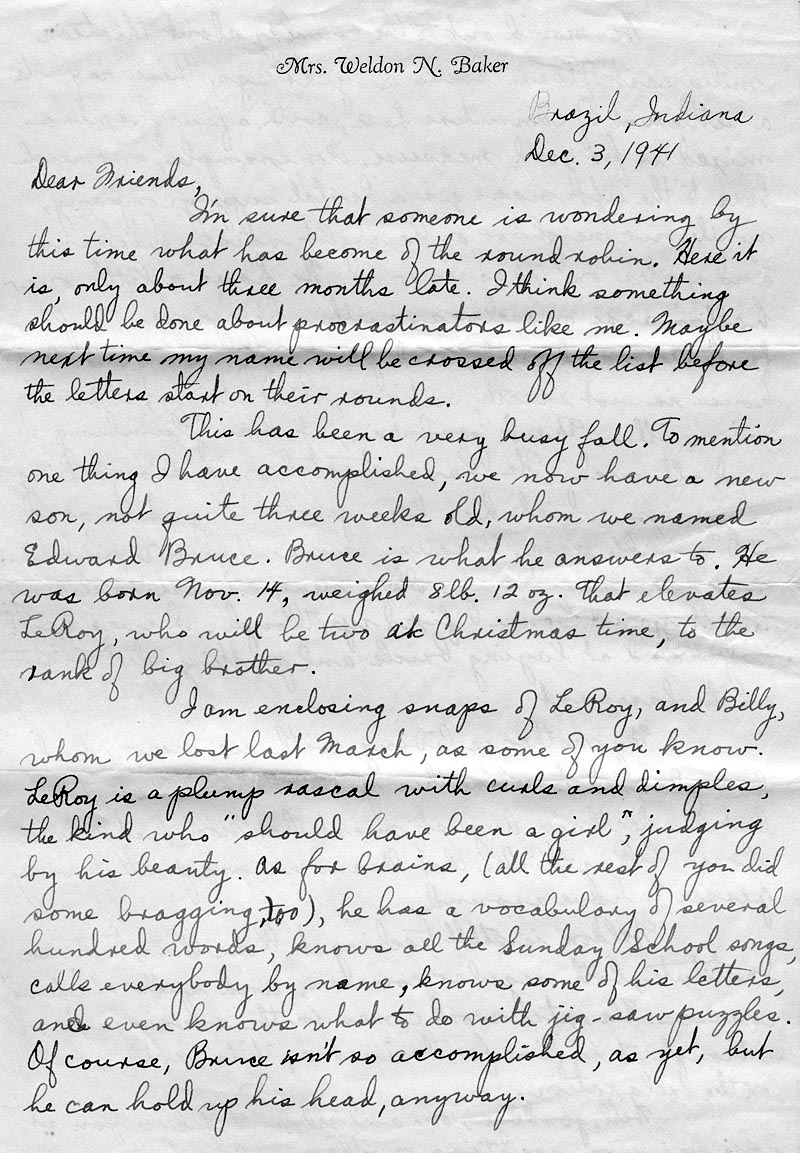 Mrs. Weldon N. Baker
Brazil, Indiana
Dec. 3, 1941
Dear Friends,
I'm sure that someone is wondering by
this time what has become of the round robin. Here it
is, only about three months late. I think something
should be done about procrastinators like me. Maybe
next time my name will be crossed off the list before
the letters start on their rounds.
This has been a very busy fall. To mention
one thing I have accomplished, we now have a new
son, not quite three weeks old, whom we named
Edward Bruce. Bruce is what he answers to. He
was born Nov. 14, weighed 8 lb. 12 oz. That elevates
LeRoy, who will be two at Christmas time, to the
rank of big brother.
I am enclosing snaps of LeRoy, and Billy,
whom we lost last March, as some of you know.
LeRoy is a plump rascal with curls and dimples,
the kind who "should have been a girl", judging
by his beauty. As for brains, (all the rest of you did
some bragging, too), he has a vocabulary of several
hundred words, knows all the Sunday School songs,
calls everybody by name, knows some of his letters,
and even knows what to do with jig-saw puzzles.
Of course, Bruce isn't so accomplished, as yet, but
he can hold up his head, anyway.